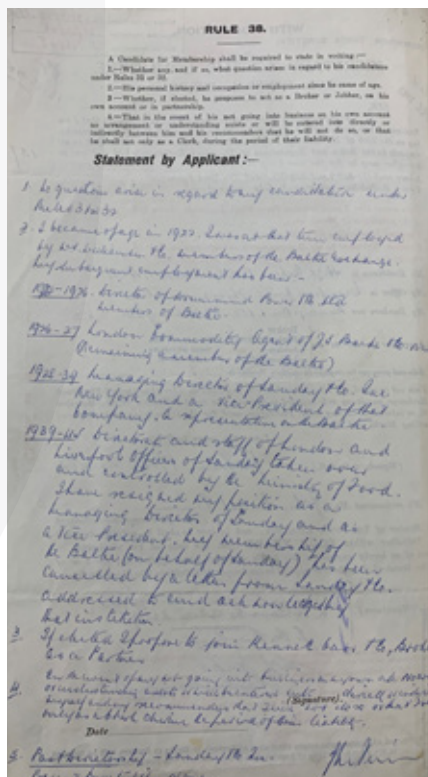 RULE 36.
A Candidate for Membership shall be required to state in writing:—
1.—Whether any, and if so, what question arises in regard to his candidature
under Rules 31 or 32.
2.—His personal history and occupation or employment since he came of age.
3.—Whether, if elected, he proposes to act as a Broker or Jobber, on his
own account or in partnership.
4.—That in the event of his not going into business on his own account
no arrangement or understanding exists or will be entered into directly or
indirectly between him and his recommenders that he will not do so, or that
he shall act only as a Clerk, during the period of their liability.
Statement by Applicant:—
1. No question arises in regard to my candidature under
Rules 31 or 32
2. I became of age in 1922. I was at that time employed
by & Co. members of the Baltic Exchange.
My subsequent employment has been:-
Director of & Co. Ltd
members of Baltic.
1926-27 London Commodity Agent of J.S. & Co.
(Remaining a member of the Baltic)
1928-39 Managing Director of Sanday & Co. Inc
New York and a Vice-President of that
Company. representation on the Baltic
1939- Directors and staff of London and
Liverpool Offices of Sanday taken over
and controlled by the Ministry of Food.
I have resigned my position as a
Managing Director of Sanday and as
a Vice President. My membership of
the Baltic (on behalf of Sanday) has been
cancelled by a letter from Sanday & Co.
addressed to and acknowledged by
that institution
3. If elected I propose to join & Co, Brokers
as a Partner
4. In the event of my not going into business on my own
or understanding exists
myself and my recommenders that
only as a Clerk during the period of their liability.
(Signature)
Date
5. Past Directorship - Sanday & Co. Inc.